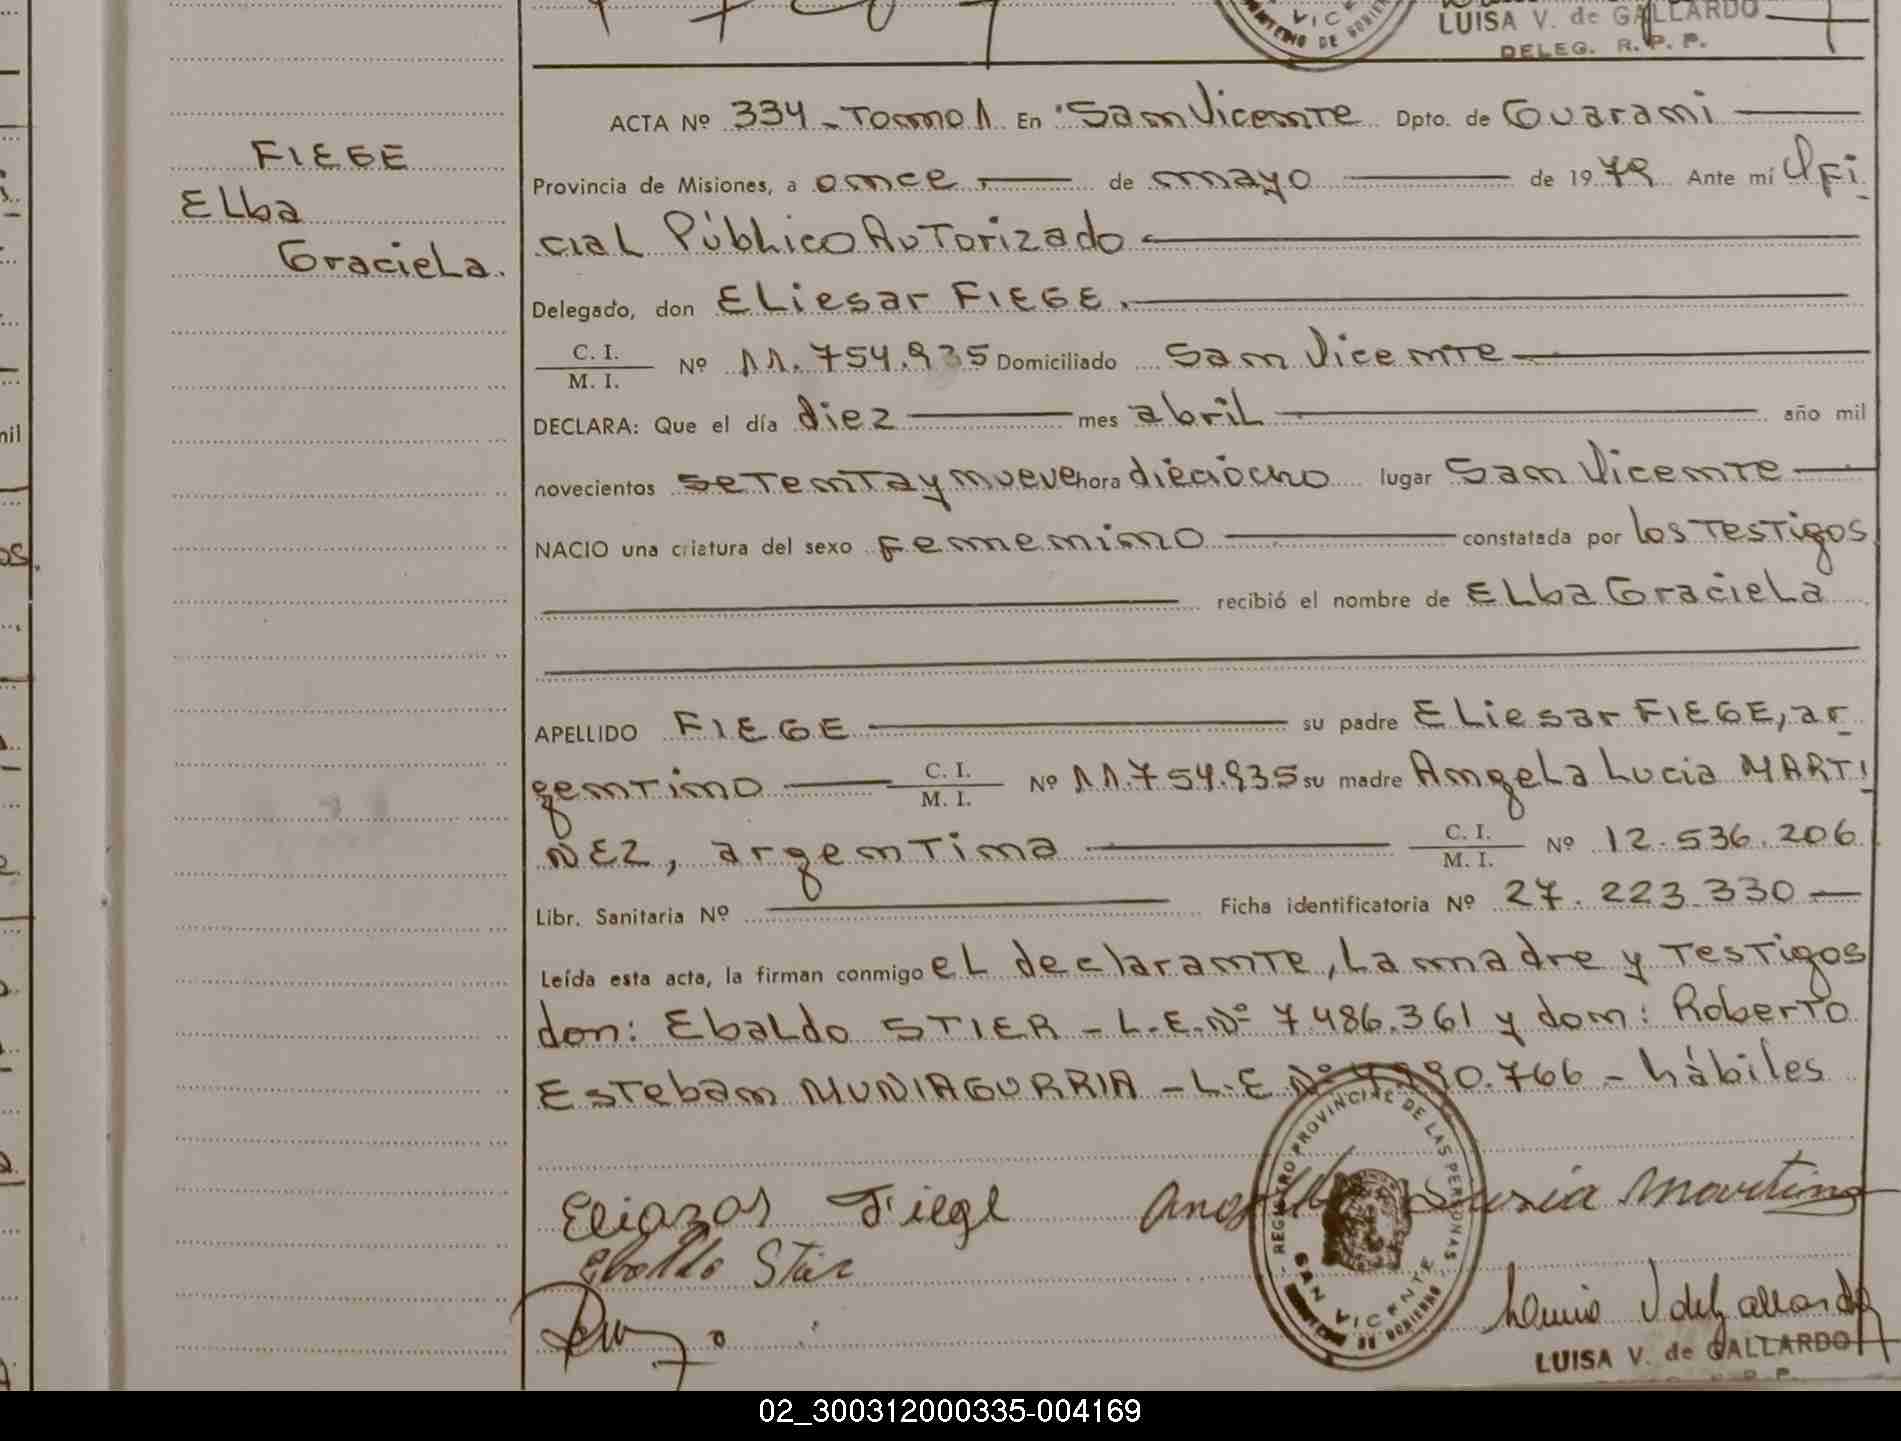 LUISA V. de GALLARDO
DELEG. R. P. P.
FIEGE
Elba
Graciela.
ACTA Nº 334 - Tomo 1 En San Vicente Dpto. de Guaraní
Provincia de Misiones, a once de mayo de 1979 Ante mí Ofi
cial Público Autorizado
Delegado, don Eliesar FIEGE.
C. I. / M. I. Nº 11.754.935 Domiciliado San Vicente
DECLARA: Que el día diez mes abril año mil
novecientos setenta y nueve hora dieciocho lugar San Vicente
NACIO una criatura del sexo femenino constatada por los testigos
recibió el nombre de Elba Graciela
APELLIDO FIEGE su padre Eliesar FIEGE, ar
gentino C. I. / M. I. Nº 11.754.935 su madre Angela Lucia MARTI
NEZ, argentina C. I. / M. I. Nº 12.536.206
Libr. Sanitaria Nº Ficha identificatoria Nº 27.223.330
Leída esta acta, la firman conmigo el declarante, la madre y testigos
don: Ebaldo STIER - L.E.Nº 7.486.361 y don: Roberto
Esteban MUNIAGURRIA - L.E Nº .766 - hábiles
Eliazar Fiege Angela Lucia Martinez
Ebaldo Stier
REGISTRO PROVINCIAL DE LAS PERSONAS
SAN VICENTE
MINISTERIO DE GOBIERNO
Luisa V de Gallardo
LUISA V. de GALLARDO
02_300312000335-004169